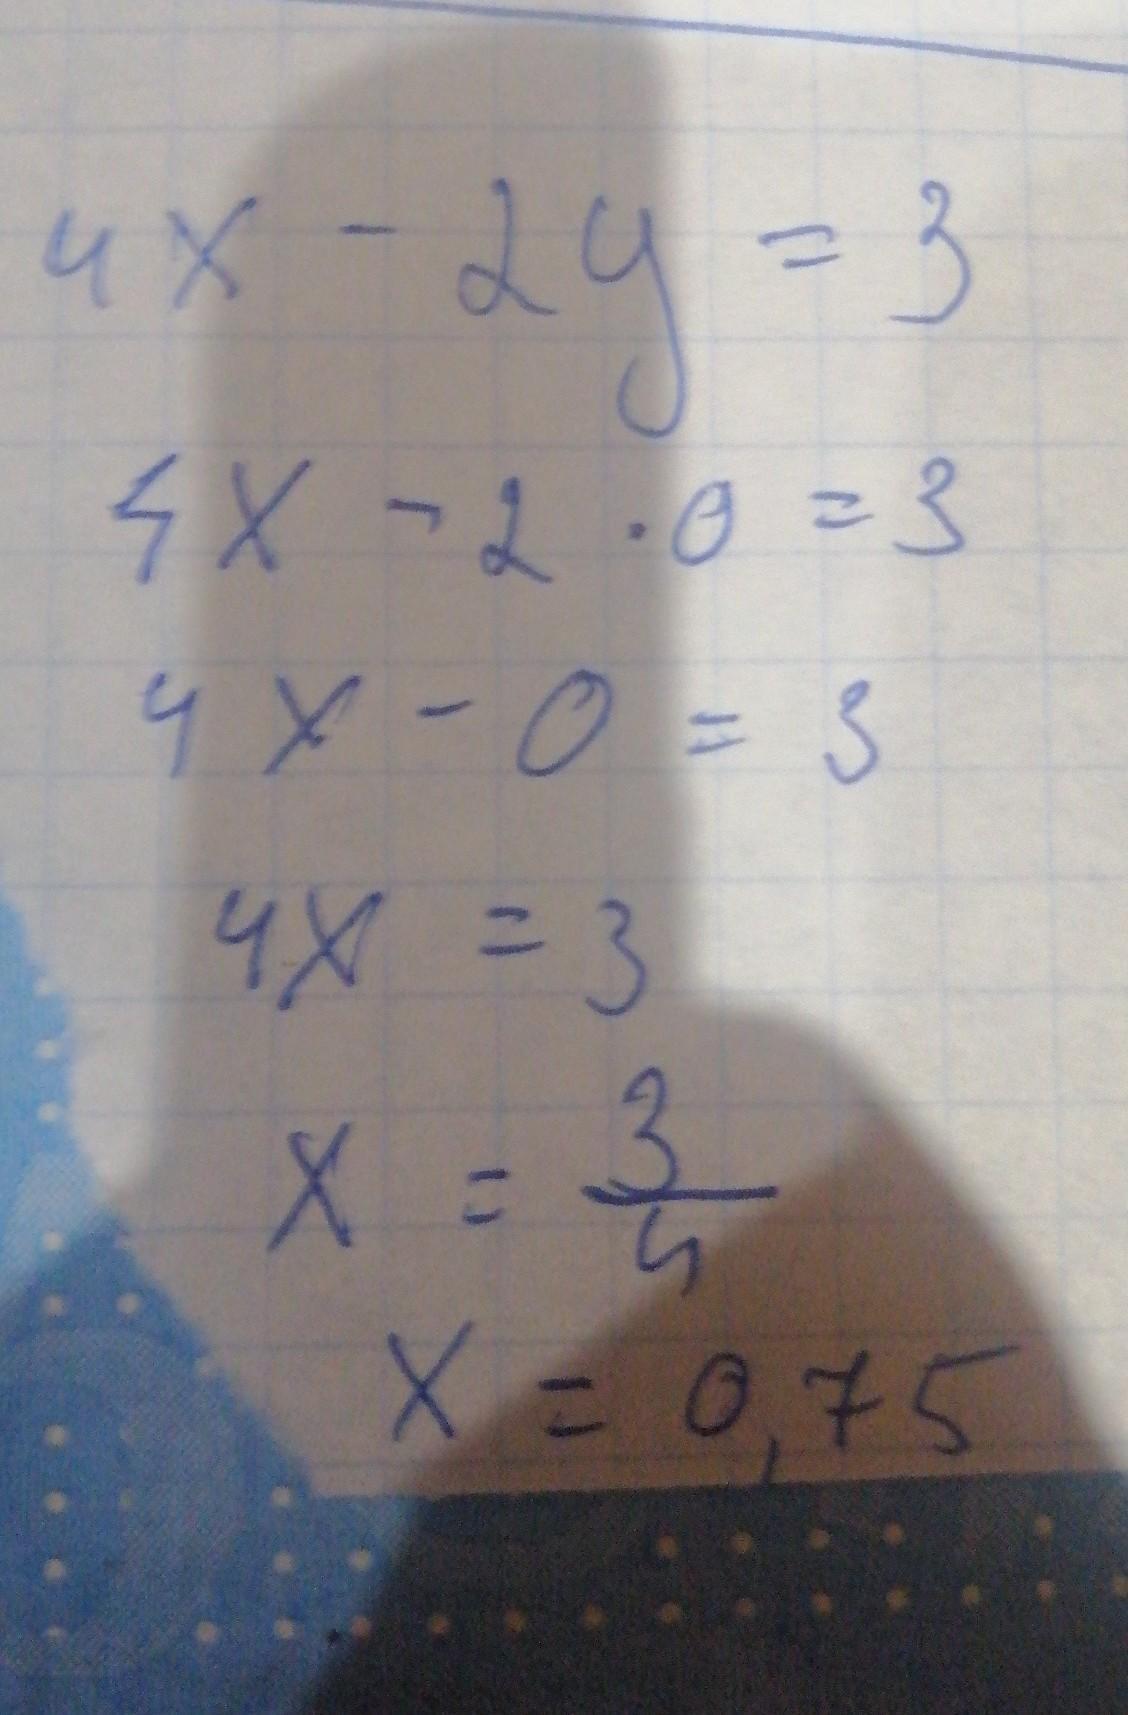 4x - 2y = 3
4x - 2 · 0 = 3
4x - 0 = 3
4x = 3
x = 3/4
x = 0,75